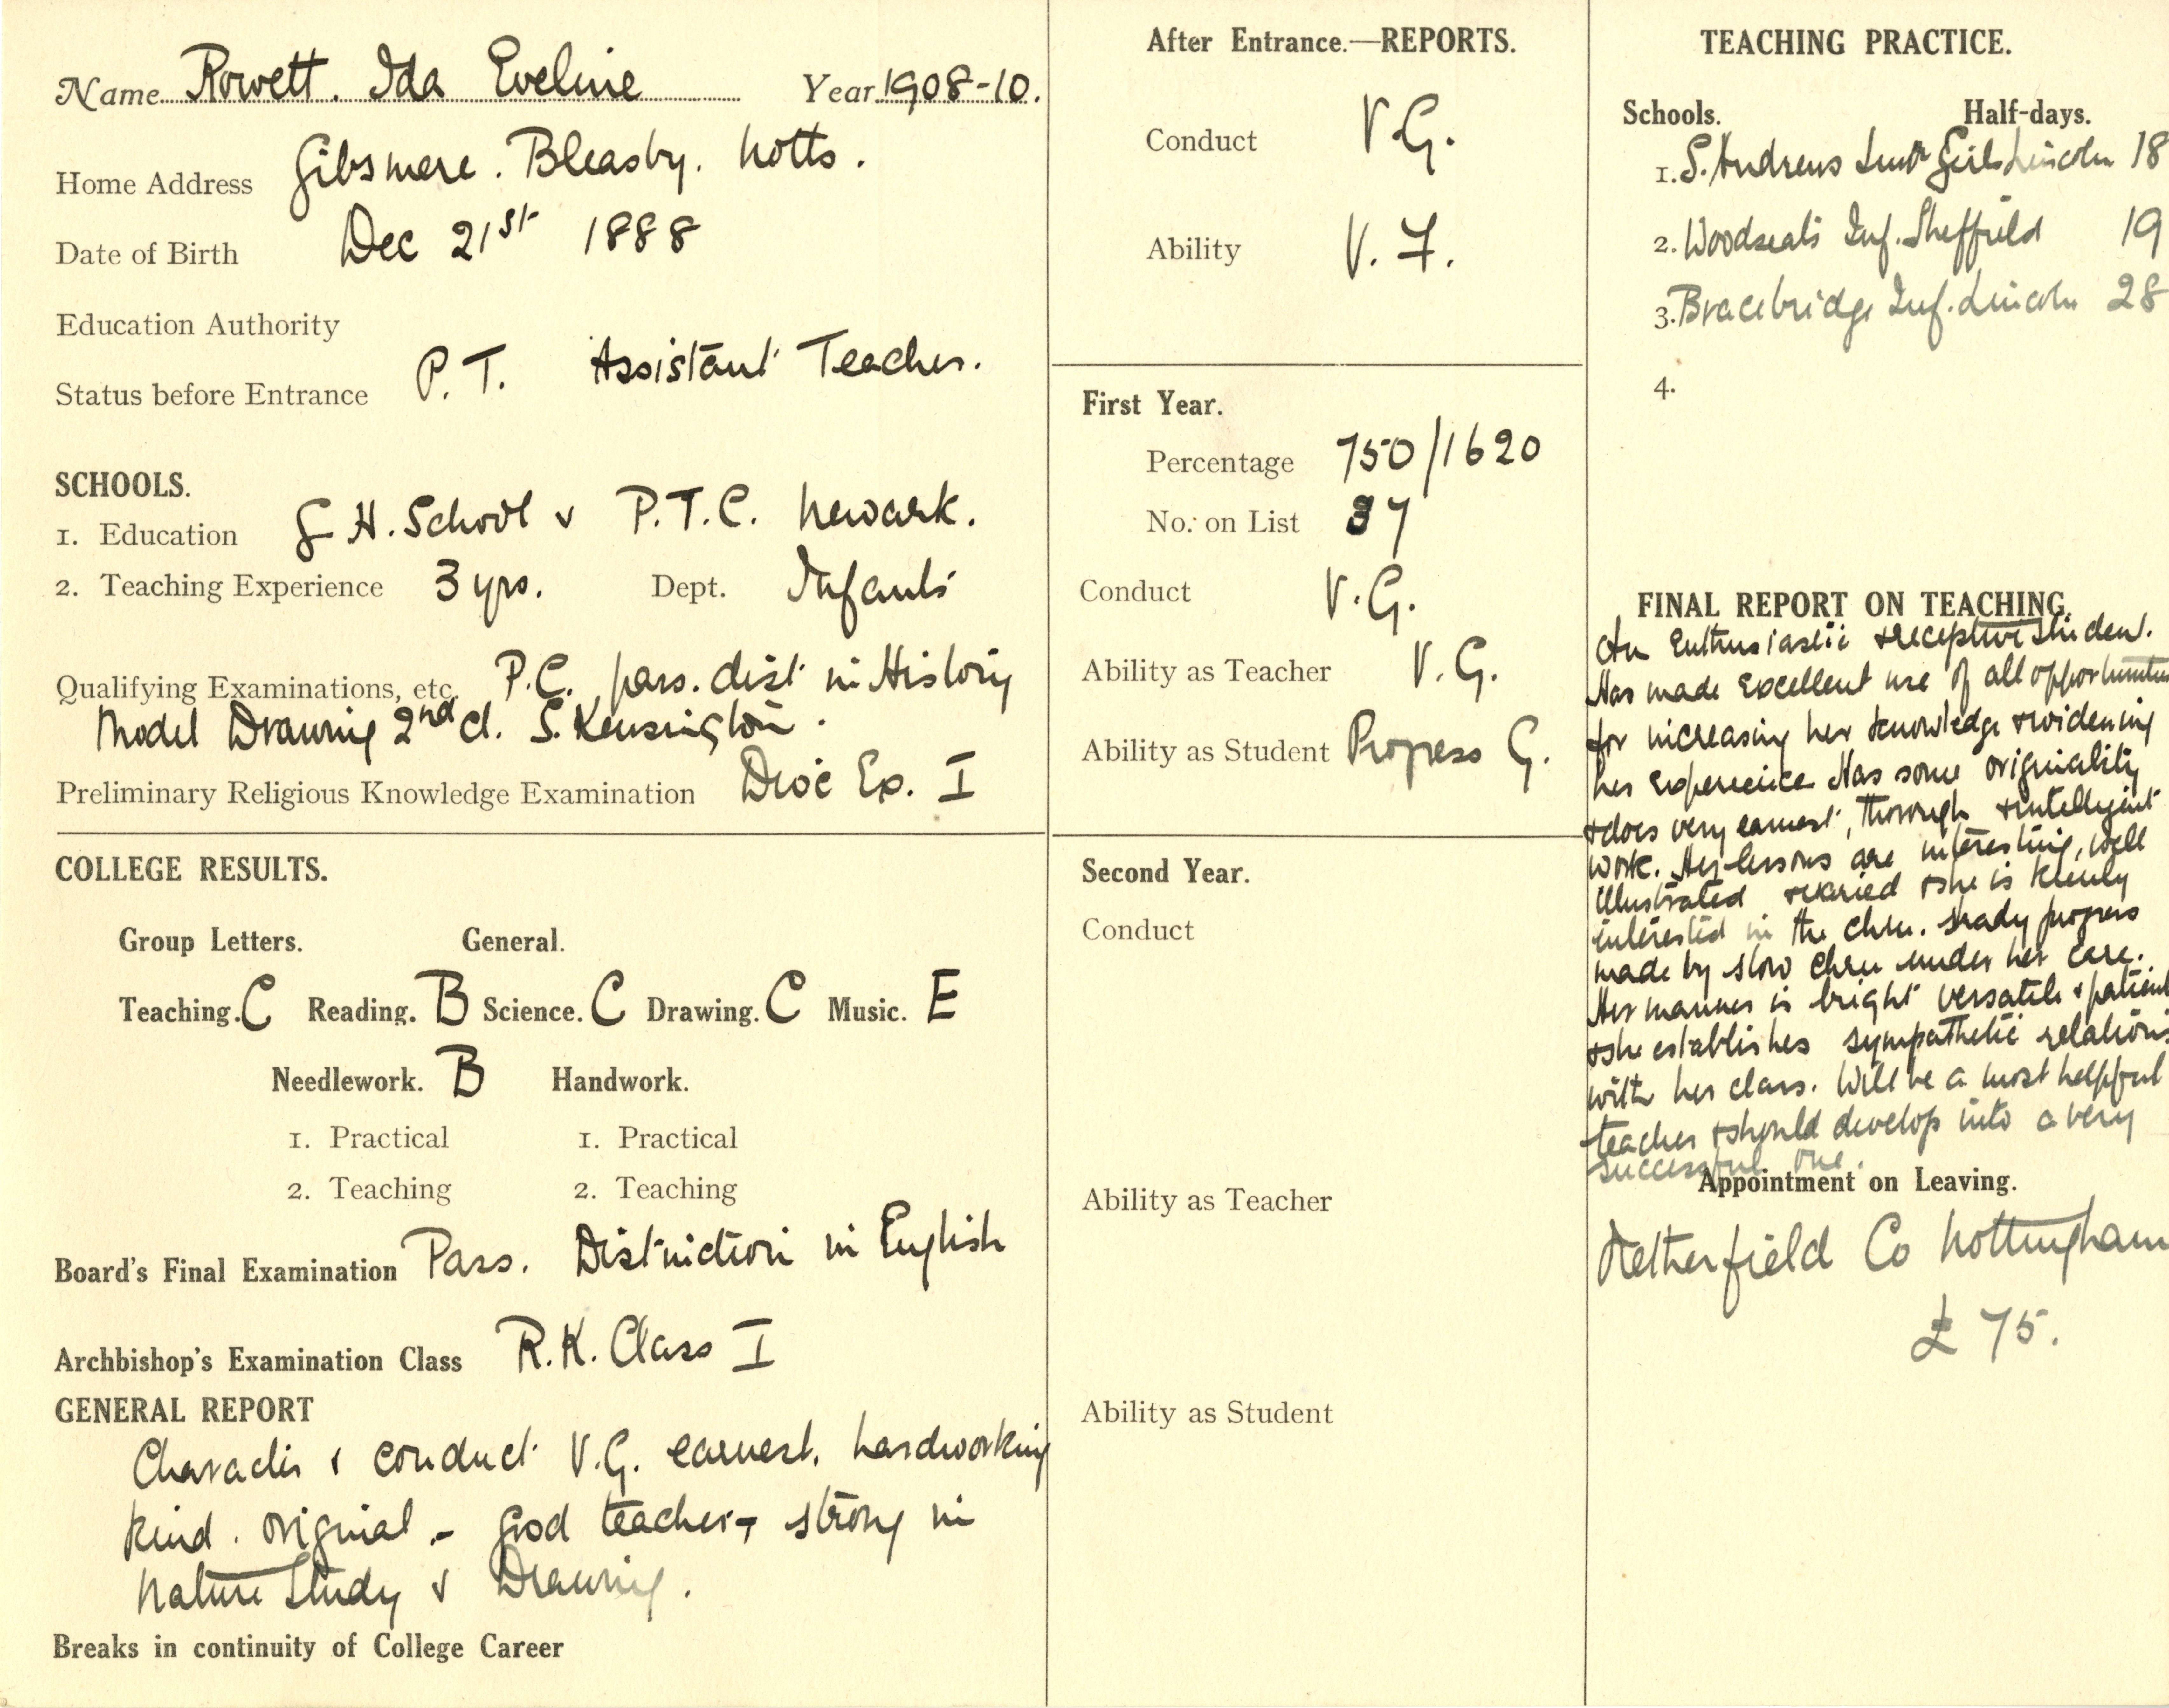 Name Rowett. Ida Eveline Year 1908-10.
Home Address Gibsmere. Bleasby. Notts.
Date of Birth Dec 21st 1888
Education Authority
Status before Entrance P.T. Assistant Teacher.
SCHOOLS.
1. Education G H. School & P.T.C. Newark.
2. Teaching Experience 3 yrs. Dept. Infants
Qualifying Examinations, etc. P.C. pass. dist in History
Model Drawing 2nd cl. S. Kensington.
Preliminary Religious Knowledge Examination Dioc Ex. I
COLLEGE RESULTS.
Group Letters. General.
Teaching. C Reading. B Science. C Drawing. C Music. E
Needlework. B Handwork.
1. Practical 1. Practical
2. Teaching 2. Teaching
Board's Final Examination Pass. Distinction in English
Archbishop's Examination Class R.K. Class I
GENERAL REPORT
Character & conduct V.G. earnest. hardworking
kind. original - good teacher - strong in
Nature Study & Drawing.
Breaks in continuity of College Career
After Entrance.—REPORTS.
Conduct V.G.
Ability V. F.
First Year.
Percentage 750/1620
No. on List 37
Conduct V.G.
Ability as Teacher V.G.
Ability as Student Progress G.
Second Year.
Conduct
Ability as Teacher
Ability as Student
TEACHING PRACTICE.
Schools. Half-days.
1. S. Andrews Girls Lincoln 18
2. Woodseats Inf. Sheffield 19
3. Bracebridge Inf. Lincoln 28
4.
FINAL REPORT ON TEACHING.
An Enthusiastic & receptive student.
Has made excellent use of all opportunities
for increasing her knowledge & widening
her experience Has some originality
& does very earnest, thorough & intelligent
work. Her lessons are interesting, well
illustrated & varied & she is keenly
interested in the chn. Steady progress
made by slow chn under her care.
Her manner is bright versatile & patient
& she establishes sympathetic relations
with her class. Will be a most helpful
teacher & should develop into a very
successful one.
Appointment on Leaving.
Netherfield Co Nottingham
£75.